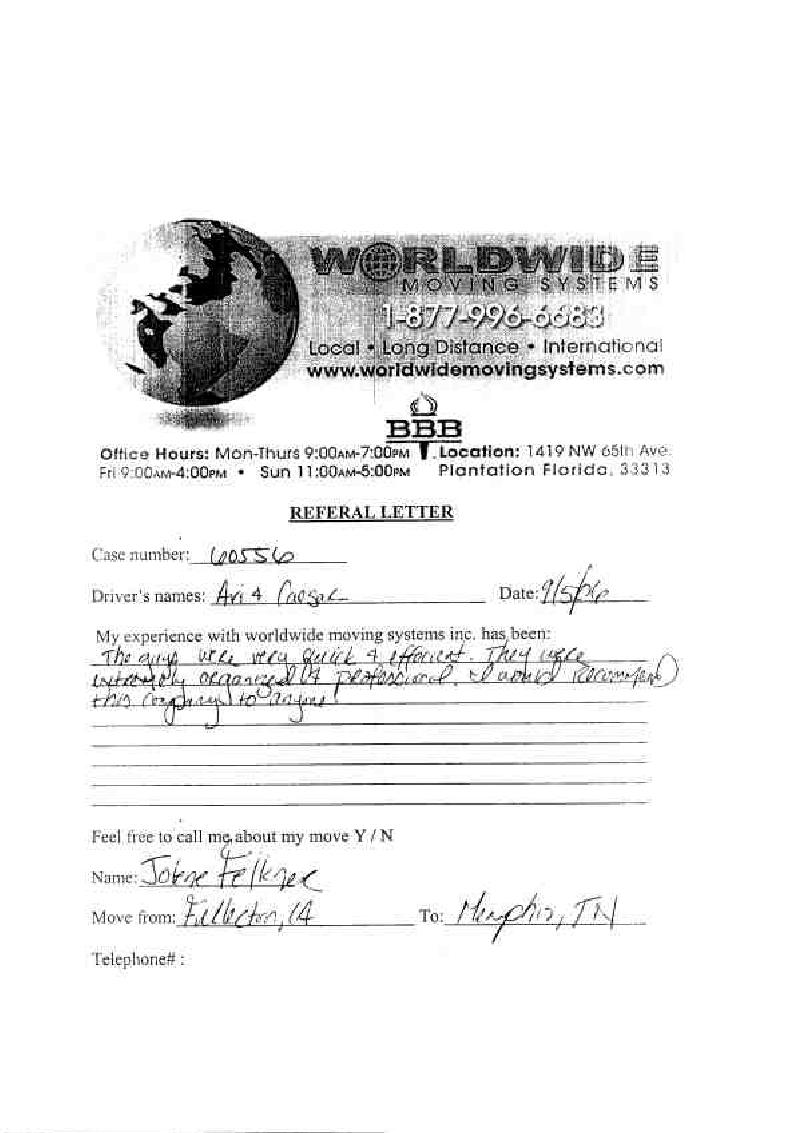 WORLDWIDE
MOVING SYSTEMS
1-877-996-6683
Local • Long Distance • International
www.worldwidemovingsystems.com
BBB
Office Hours: Mon-Thurs 9:00AM-7:00PM
Fri 9:00AM-4:00PM • Sun 11:00AM-5:00PM
Location: 1419 NW 65th Ave.
Plantation Florida, 33313
REFERAL LETTER
Case number: 60556
Driver's names: Avi & Caesar Date: 9/5/06
My experience with worldwide moving systems inc. has been:
The guys were very quick & efficient. They were
extremely organized & professional. I would recommend
this company to anyone!
Feel free to call me about my move Y / N
Name: Felkner
Move from: Fullerton, CA To: Memphis, TN
Telephone# :